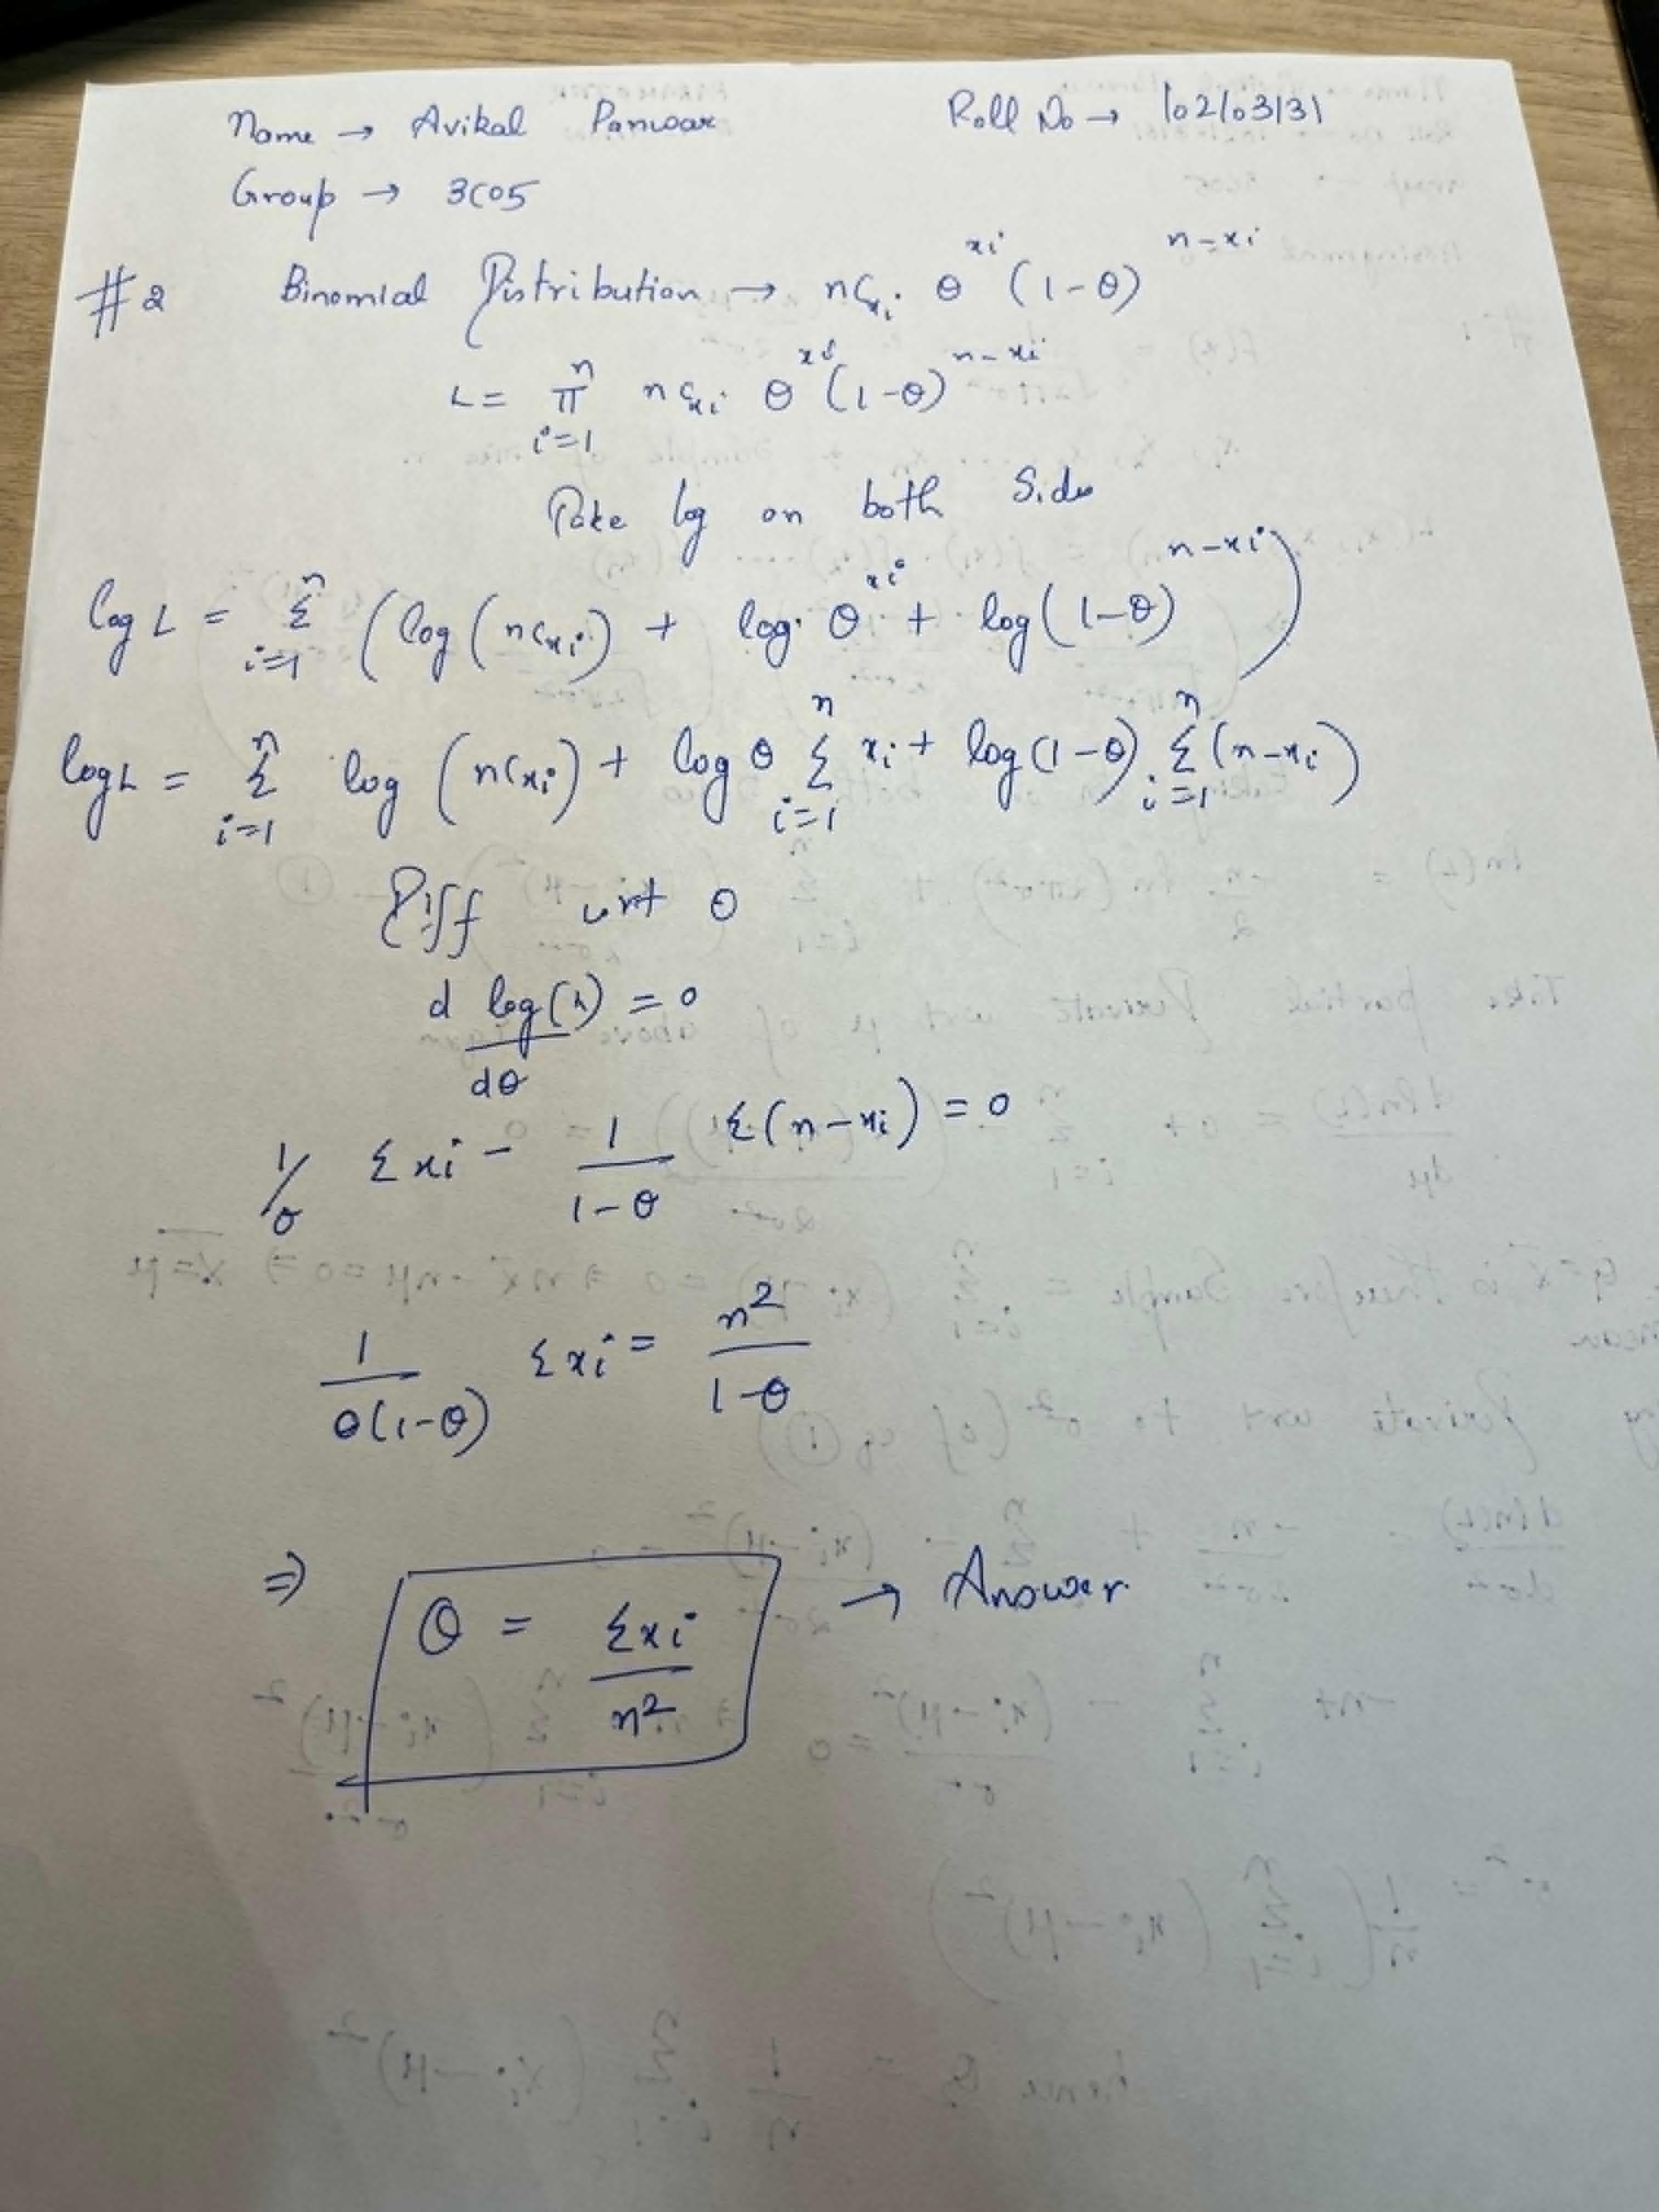 Name → Avikal Panwar Roll No → 102103131
Group → 3C05
#2 Binomial Distribution → nCxi θ^xi (1-θ)^n-xi
L = π^n i=1 nCxi θ^xi (1-θ)^n-xi
Take log on both Sides
log L = Σ^n i=1 (log(nCxi) + log θ^xi + log(1-θ)^n-xi)
log L = Σ^n i=1 log (nCxi) + log θ Σ^n i=1 xi + log(1-θ) Σ^n i=1 (n-xi)
Diff wrt θ
d log(L) = 0
dθ
1/θ Σxi - 1/(1-θ) Σ(n-xi) = 0
1/(θ(1-θ)) Σxi = n²/(1-θ)
⇒ θ = Σxi/n² → Answer